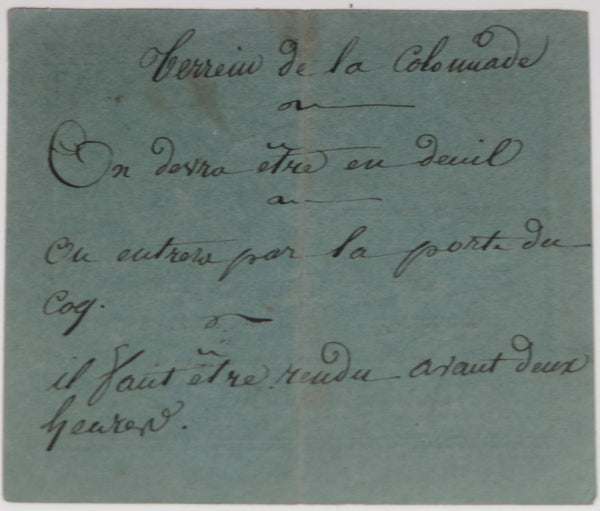 Terrein de la Colonnade
On devra être en deuil
on entrera par la porte du
coq.
il faut être rendu avant deux
heures.